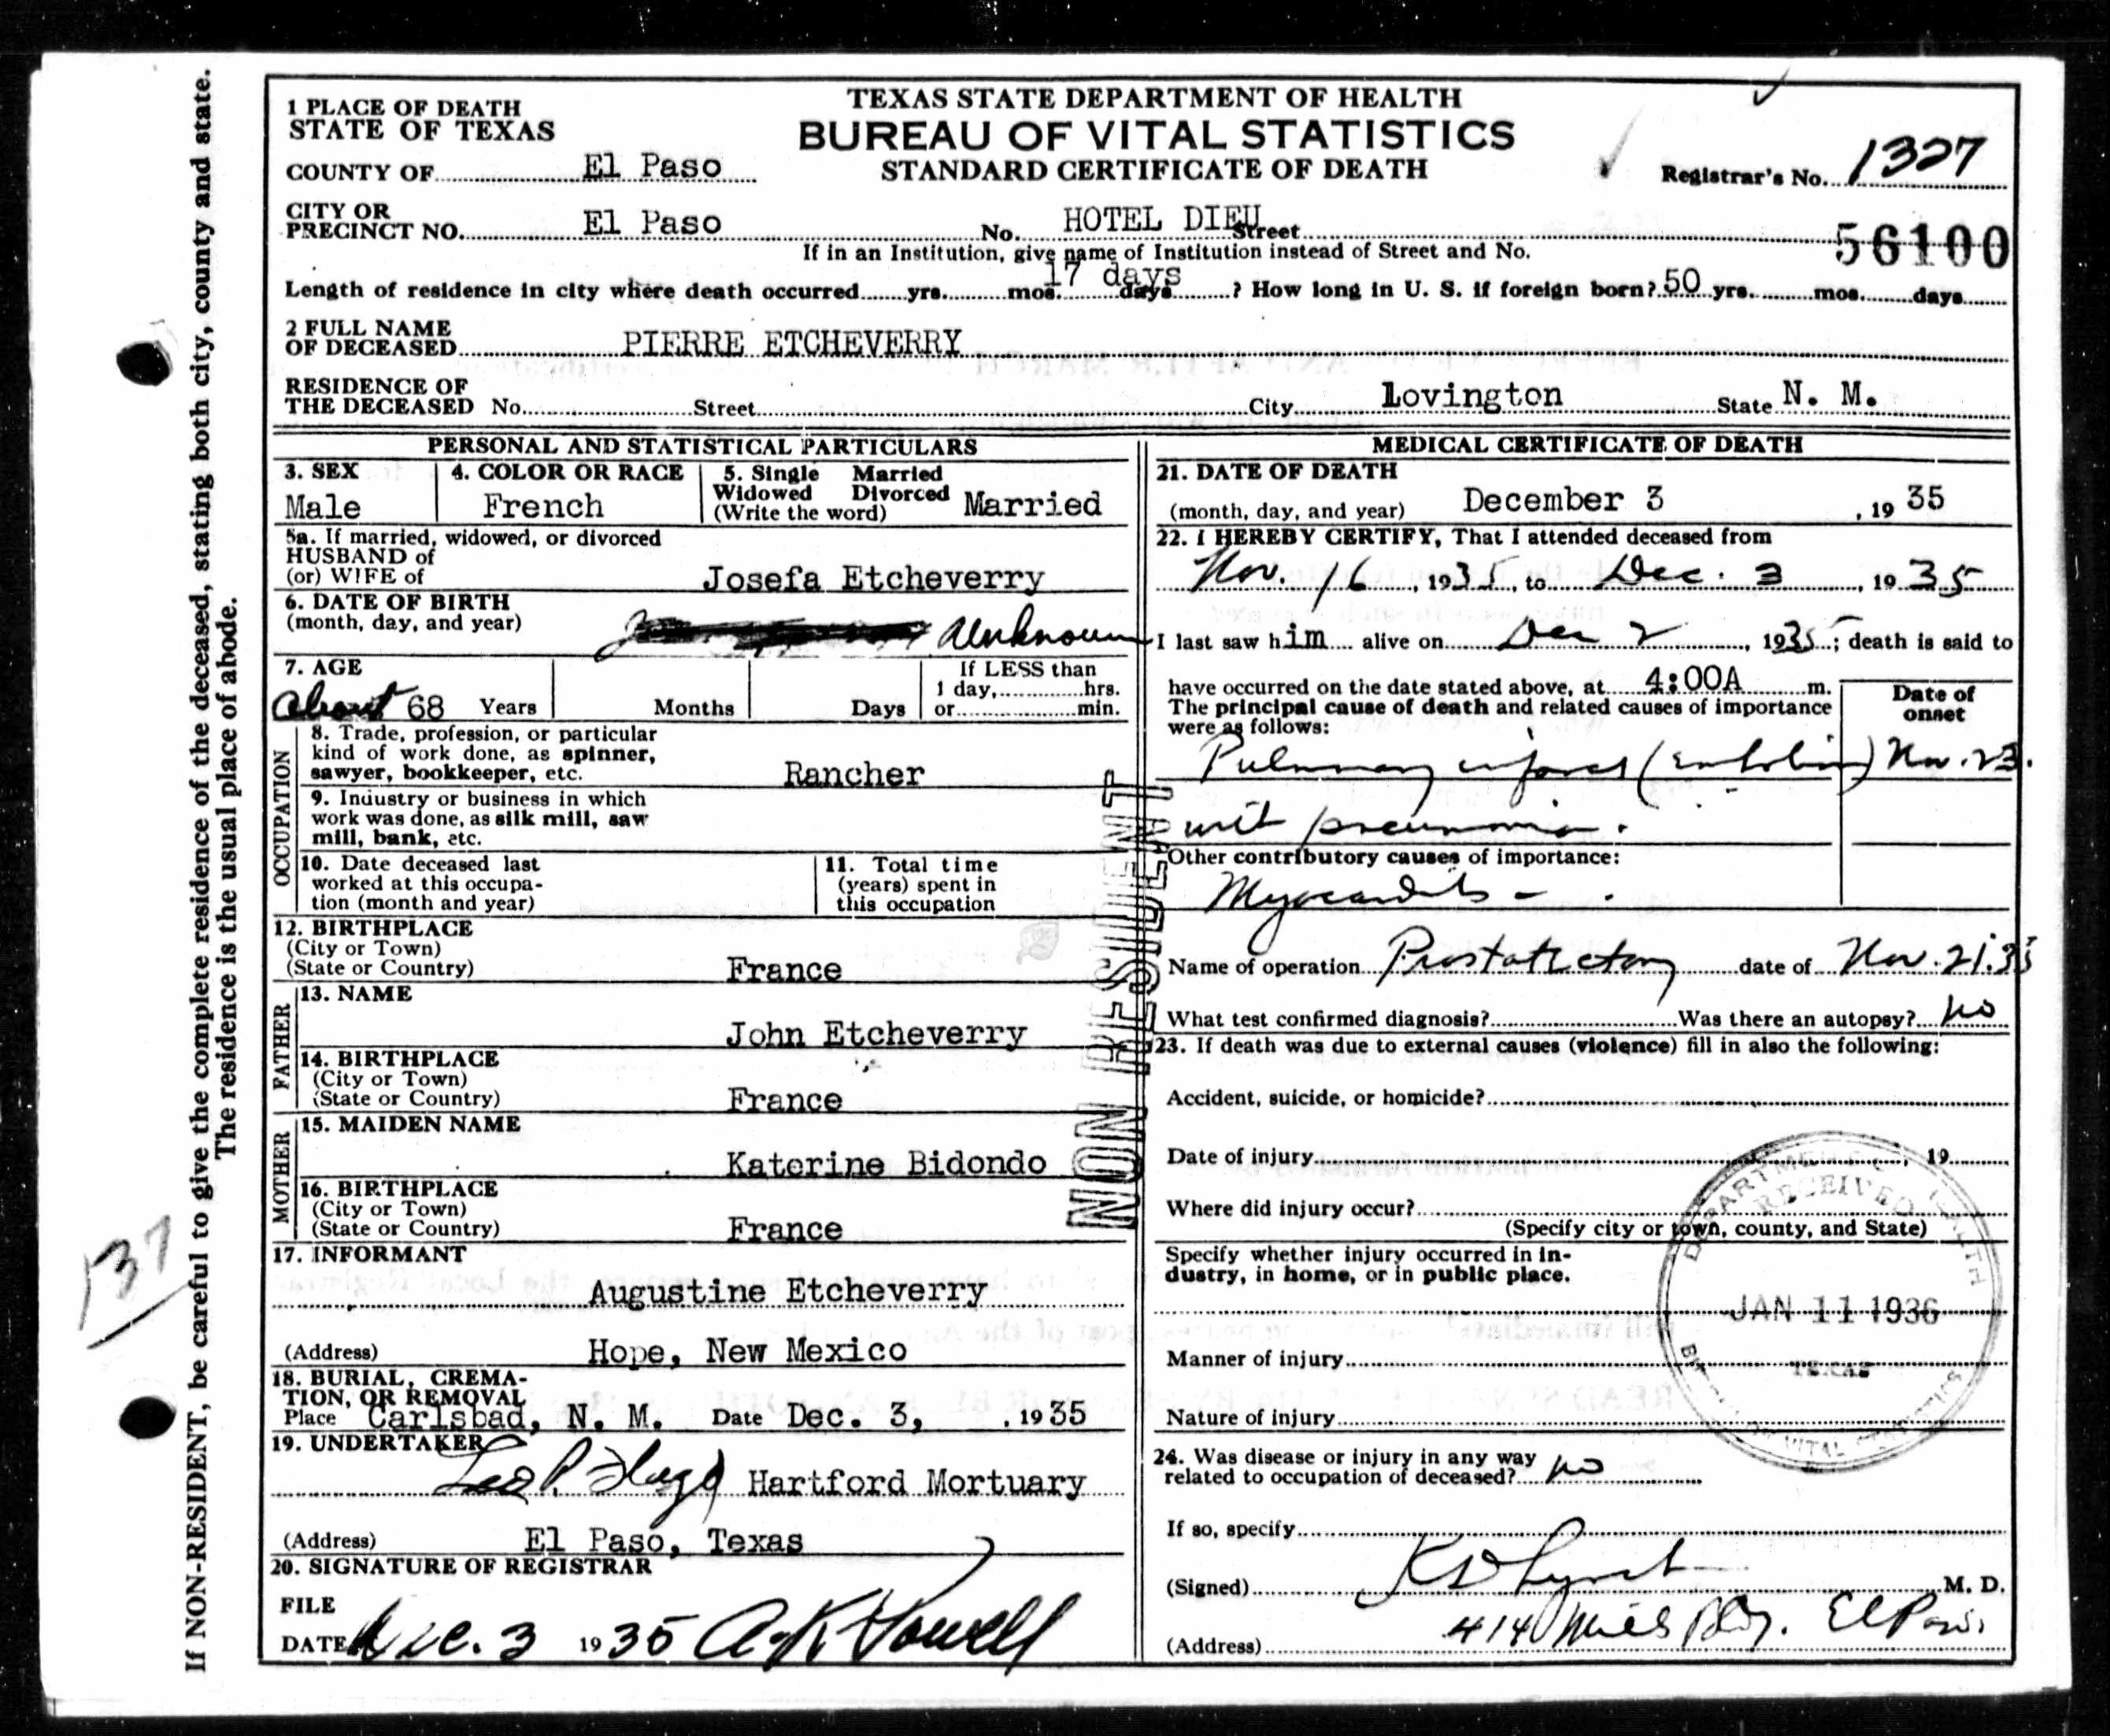 If NON-RESIDENT, be careful to give the complete residence of the deceased, stating both city, county and state.
The residence is the usual place of abode.
137
1 PLACE OF DEATH
STATE OF TEXAS
COUNTY OF El Paso
TEXAS STATE DEPARTMENT OF HEALTH
BUREAU OF VITAL STATISTICS
STANDARD CERTIFICATE OF DEATH
Registrar's No. 1327
CITY OR
PRECINCT NO. El Paso No. HOTEL DIEU Street
56100
If in an Institution, give name of Institution instead of Street and No.
Length of residence in city where death occurred yrs. mos. 17 days days ? How long in U. S. if foreign born? 50 yrs. mos. days
2 FULL NAME
OF DECEASED PIERRE ETCHEVERRY
RESIDENCE OF
THE DECEASED No. Street City Lovington State N. M.
PERSONAL AND STATISTICAL PARTICULARS
3. SEX
Male
4. COLOR OR RACE
French
5. Single Married
Widowed Divorced
(Write the word) Married
5a. If married, widowed, or divorced
HUSBAND of
(or) WIFE of Josefa Etcheverry
6. DATE OF BIRTH
(month, day, and year) Unknown
7. AGE
About 68 Years Months Days
If LESS than
1 day, hrs.
or min.
OCCUPATION
8. Trade, profession, or particular
kind of work done, as spinner,
sawyer, bookkeeper, etc. Rancher
9. Industry or business in which
work was done, as silk mill, saw
mill, bank, etc.
10. Date deceased last
worked at this occupa-
tion (month and year)
11. Total time
(years) spent in
this occupation
12. BIRTHPLACE
(City or Town)
(State or Country) France
FATHER
13. NAME
John Etcheverry
14. BIRTHPLACE
(City or Town)
(State or Country) France
MOTHER
15. MAIDEN NAME
Katerine Bidondo
16. BIRTHPLACE
(City or Town)
(State or Country) France
17. INFORMANT
Augustine Etcheverry
(Address) Hope, New Mexico
18. BURIAL, CREMA-
TION, OR REMOVAL
Place Carlsbad, N. M. Date Dec. 3, , 1935
19. UNDERTAKER
Leo P. Hartford Mortuary
(Address) El Paso, Texas
20. SIGNATURE OF REGISTRAR
FILE
DATE Dec. 3 1935 A. K. Powell
NON RESIDENT
MEDICAL CERTIFICATE OF DEATH
21. DATE OF DEATH
(month, day, and year) December 3 , 19 35
22. I HEREBY CERTIFY, That I attended deceased from
Nov. 16 , 1935, to Dec. 3 , 19 35
I last saw him alive on Dec 2 , 1935; death is said to
have occurred on the date stated above, at 4:00A m.
The principal cause of death and related causes of importance
were as follows:
Date of
onset
Pulmonary infarct (embolism) Nov. 23.
with pneumonia.
Other contributory causes of importance:
Myocarditis -
Name of operation Prostatectomy date of Nov. 21. 35
What test confirmed diagnosis? Was there an autopsy? no
23. If death was due to external causes (violence) fill in also the following:
Accident, suicide, or homicide?
Date of injury , 19
Where did injury occur?
(Specify city or town, county, and State)
Specify whether injury occurred in in-
dustry, in home, or in public place.
Manner of injury
Nature of injury
DEPARTMENT OF HEALTH
RECEIVED
JAN 11 1936
TEXAS
BUREAU OF VITAL STATISTICS
24. Was disease or injury in any way
related to occupation of deceased? no
If so, specify
(Signed) K D Lynch M. D.
(Address) 414 Mills Bldg. El Paso